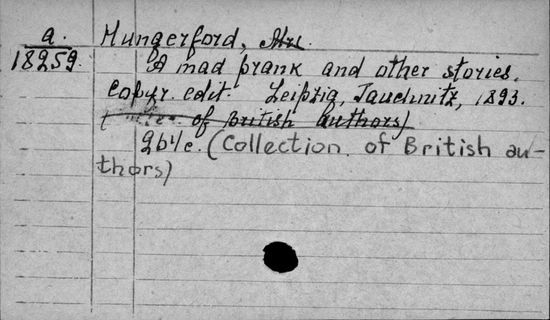 a.
18259.
Hungerford, Mrs.
A mad prank and other stories.
Copyr. edit. Leipzig, Tauchnitz, 1893.
of British authors)
(Collection of British au-
thors)